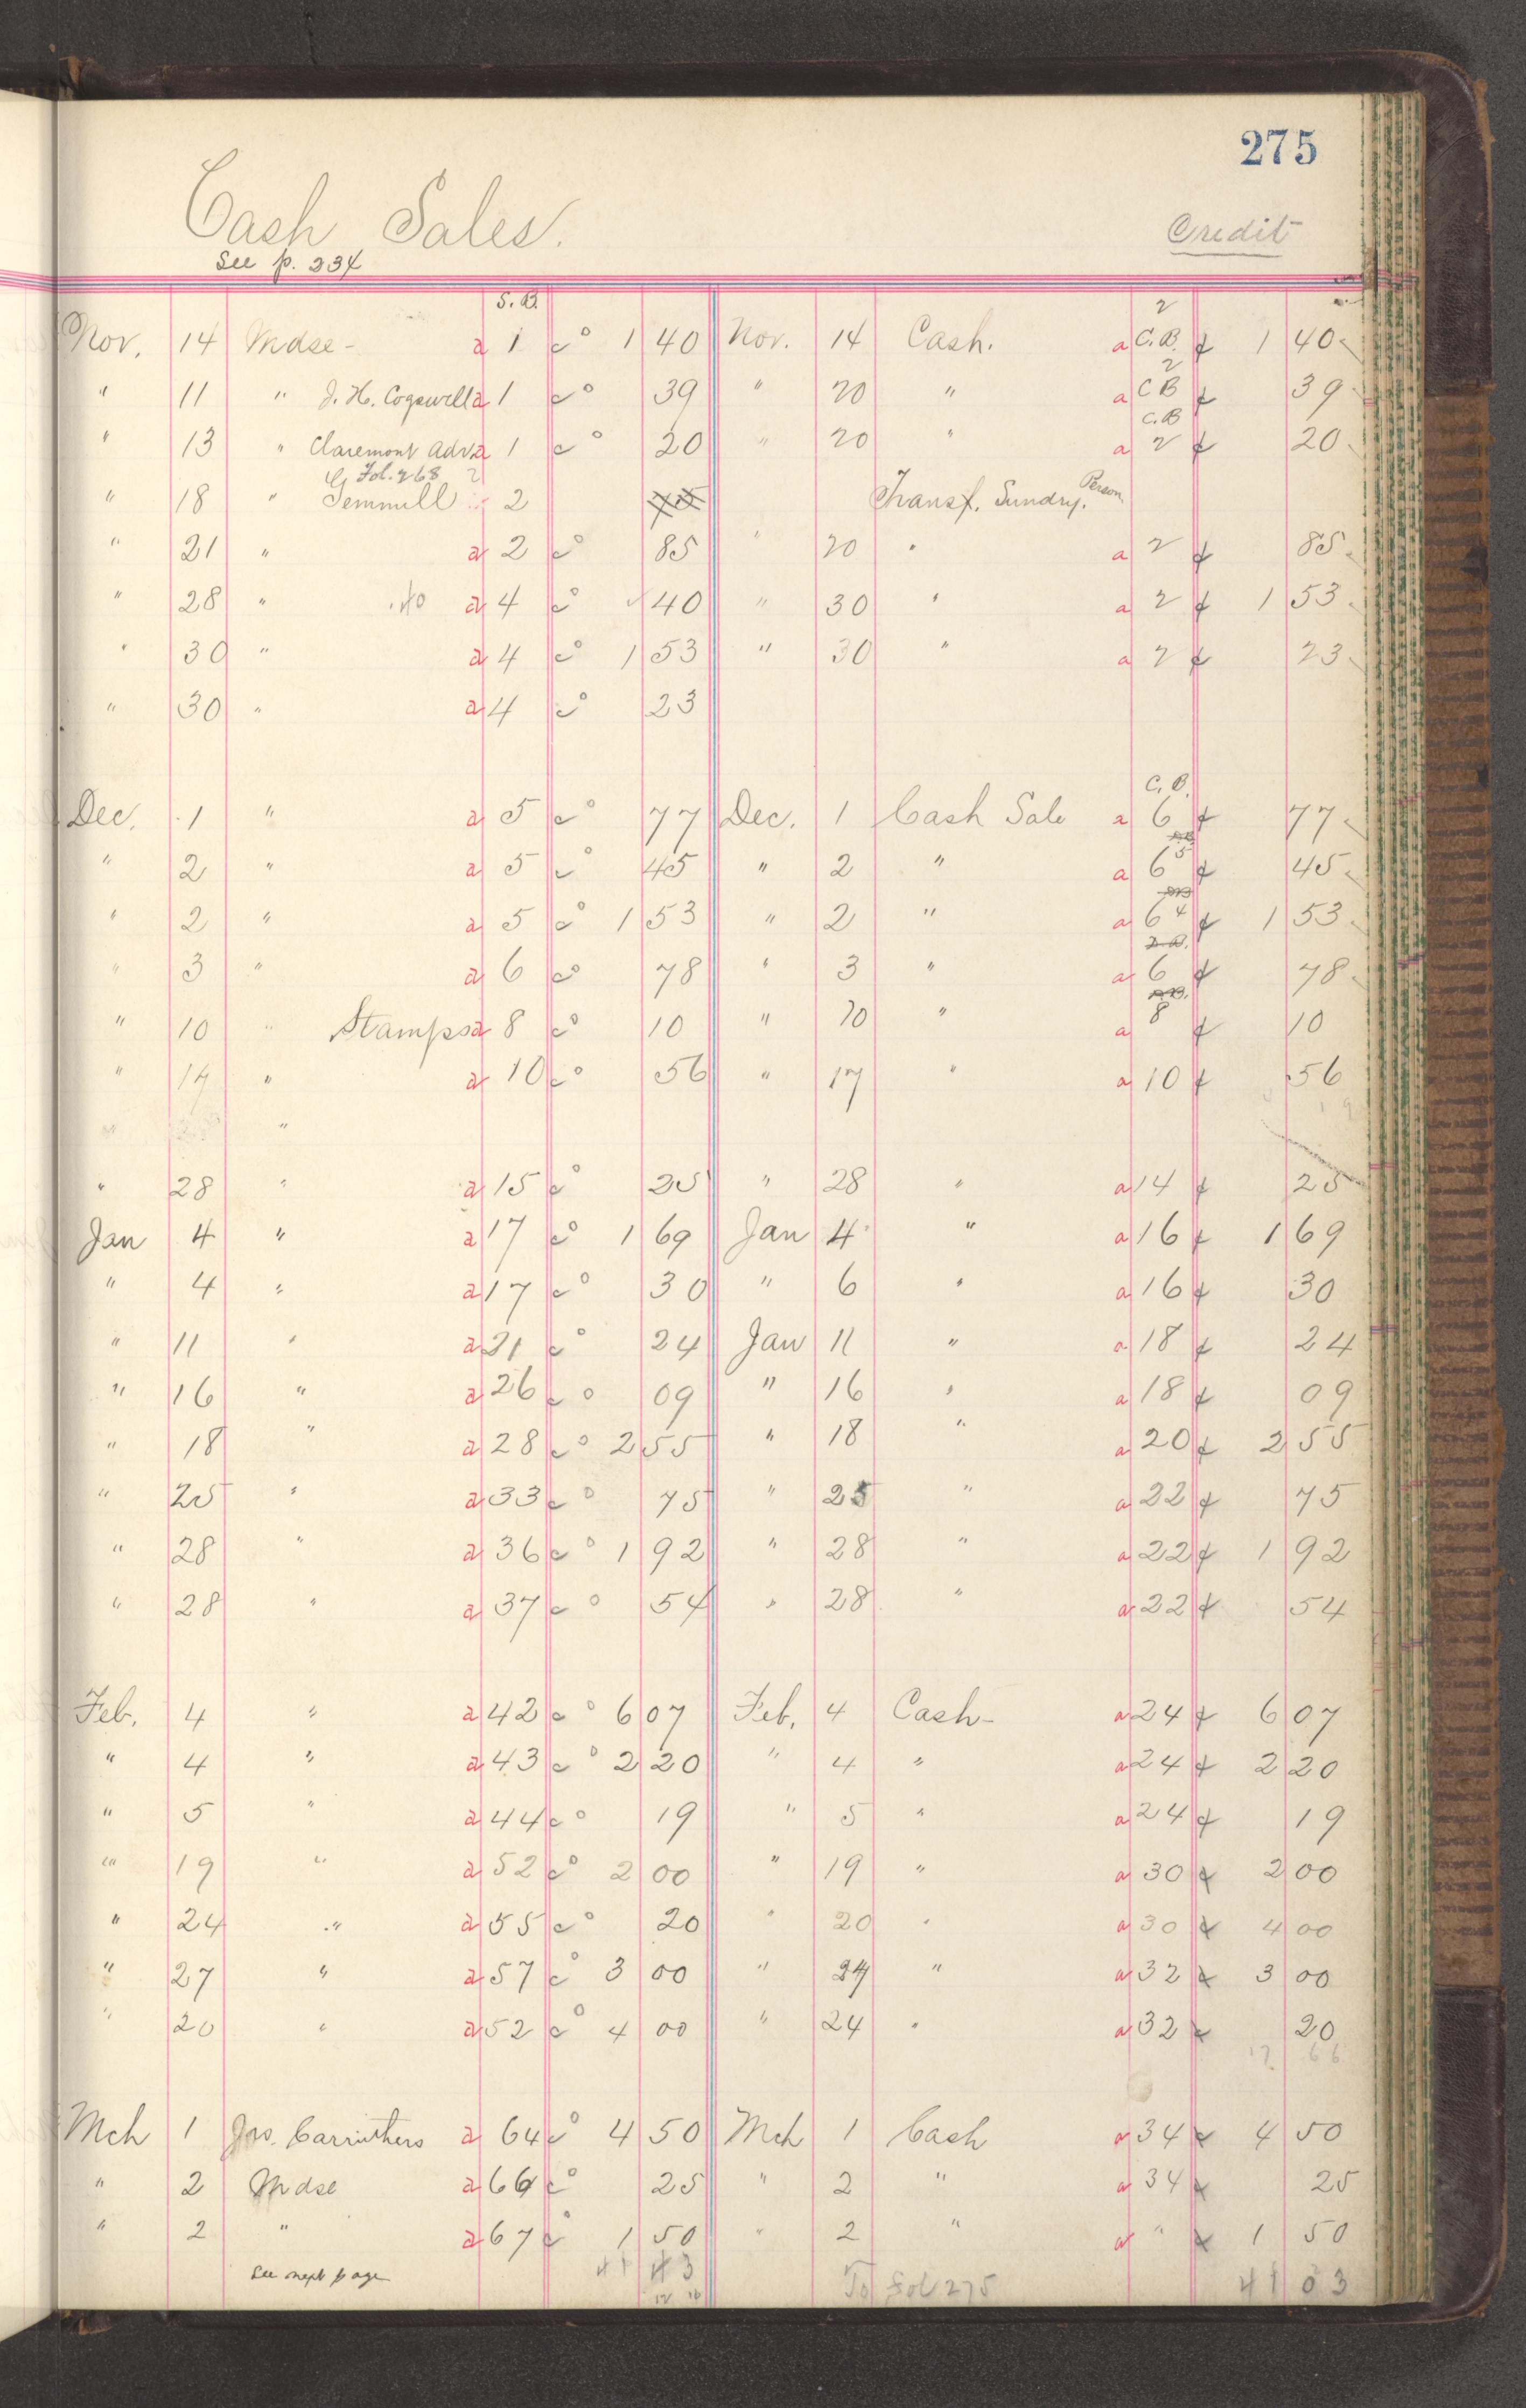 275
Cash Sales.
Credit
See p. 234
S.B. 2
Nov. 14 Mdse - a 1 c° 1 40 Nov. 14 Cash. a C.B. ¢ 1 40
2
" 11 " J. H. Cogswell a 1 c° 39 " 20 " a CB ¢ 39
C.B
" 13 " Claremont Adv. a 1 c° 20 " 20 " a 2 ¢ 20
Fol. 268
" 18 " Gemmill 2 Transf. Sundry. Person
" 21 " a 2 c° 85 " 20 " a 2 ¢ 85
" 28 " .40 a 4 c° 40 " 30 " a 2 ¢ 1 53
" 30 " a 4 c° 1 53 " 30 " a 2 ¢ 23
" 30 " a 4 c° 23
C.B.
Dec. 1 " a 5 c° 77 Dec. 1 Cash Sale a 6 ¢ 77
" 2 " a 5 c° 45 " 2 " a 6 5 ¢ 45
" 2 " a 5 c° 1 53 " 2 " a 6 4 ¢ 1 53
" 3 " a 6 c° 78 " 3 " a 6 ¢ 78
" 10 " Stamps a 8 c° 10 " 10 " a 8 ¢ 10
" 14 " a 10 c° 56 " 17 " a 10 ¢ 56
" "
" 28 " a 15 c° 25 " 28 " a 14 ¢ 25
Jan 4 " a 17 c° 1 69 Jan 4 " a 16 ¢ 1 69
" 4 " a 17 c° 30 " 6 " a 16 ¢ 30
" 11 " a 21 c° 24 Jan 11 " a 18 ¢ 24
" 16 " a 26 c° 09 " 16 " a 18 ¢ 09
" 18 " a 28 c° 2 55 " 18 " a 20 ¢ 2 55
" 25 " a 33 c° 75 " 25 " a 22 ¢ 75
" 28 " a 36 c° 1 92 " 28 " a 22 ¢ 1 92
" 28 " a 37 c° 54 " 28 " a 22 ¢ 54
Feb. 4 " a 42 c° 6 07 Feb. 4 Cash - a 24 ¢ 6 07
" 4 " a 43 c° 2 20 " 4 " a 24 ¢ 2 20
" 5 " a 44 c° 19 " 5 " a 24 ¢ 19
" 19 " a 52 c° 2 00 " 19 " a 30 ¢ 2 00
" 24 " a 55 c° 20 " 20 " a 30 ¢ 4 00
" 27 " a 57 c° 3 00 " 27 " a 32 ¢ 3 00
" 20 " a 52 c° 4 00 " 24 " a 32 ¢ 20
17 66
Mch 1 Jas. Carruthers a 64 c° 4 50 Mch 1 Cash a 34 ¢ 4 50
" 2 Mdse a 66 c° 25 " 2 " a 34 ¢ 25
" 2 " a 67 c° 1 50 " 2 " a " ¢ 1 50
See next page 41 43 To fol 275 41 03